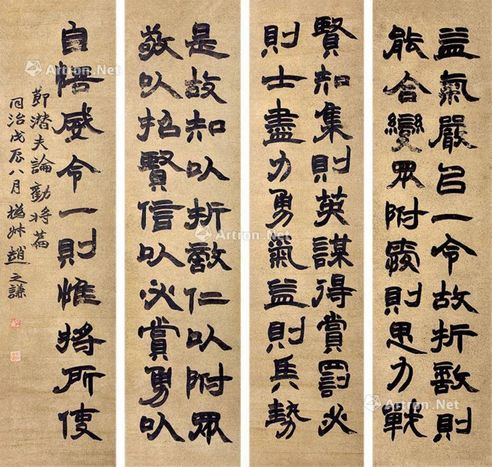 益氣嚴㠯一令故折敵則
能合變眾附愛則思力戰
賢知集則英謀得賞罰必
則士盡力勇氣益則兵勢
是故知以折敵仁以附眾
敬以招賢信以必賞勇以
自倍威令一則惟將所使
節潛夫論勸將篇
同治戊辰八月撝叔趙之謙
Artron.Net
Artron.Net
Artron.Net
Artron.Net